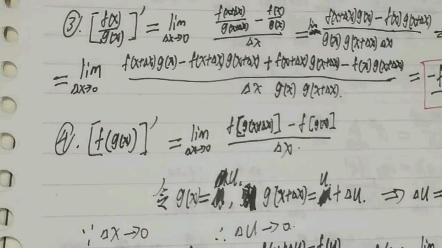 ③. [f(x)/g(x)]' = lim Δx→0 (f(x+Δx)/g(x+Δx) - f(x)/g(x))/Δx = lim (f(x+Δx)g(x) - f(x)g(x+Δx))/(g(x) g(x+Δx) Δx) =
= lim Δx→0 (f(x+Δx)g(x) - f(x+Δx)g(x+Δx) + f(x+Δx)g(x+Δx) - f(x)g(x+Δx))/(Δx g(x) g(x+Δx)) = -f
④. [f(g(x))]' = lim Δx→0 (f[g(x+Δx)] - f[g(x)])/Δx
令 g(x)=u, g(x+Δx)=u+Δu. ⇒ Δu=
∵ Δx→0 ∴ Δu→0